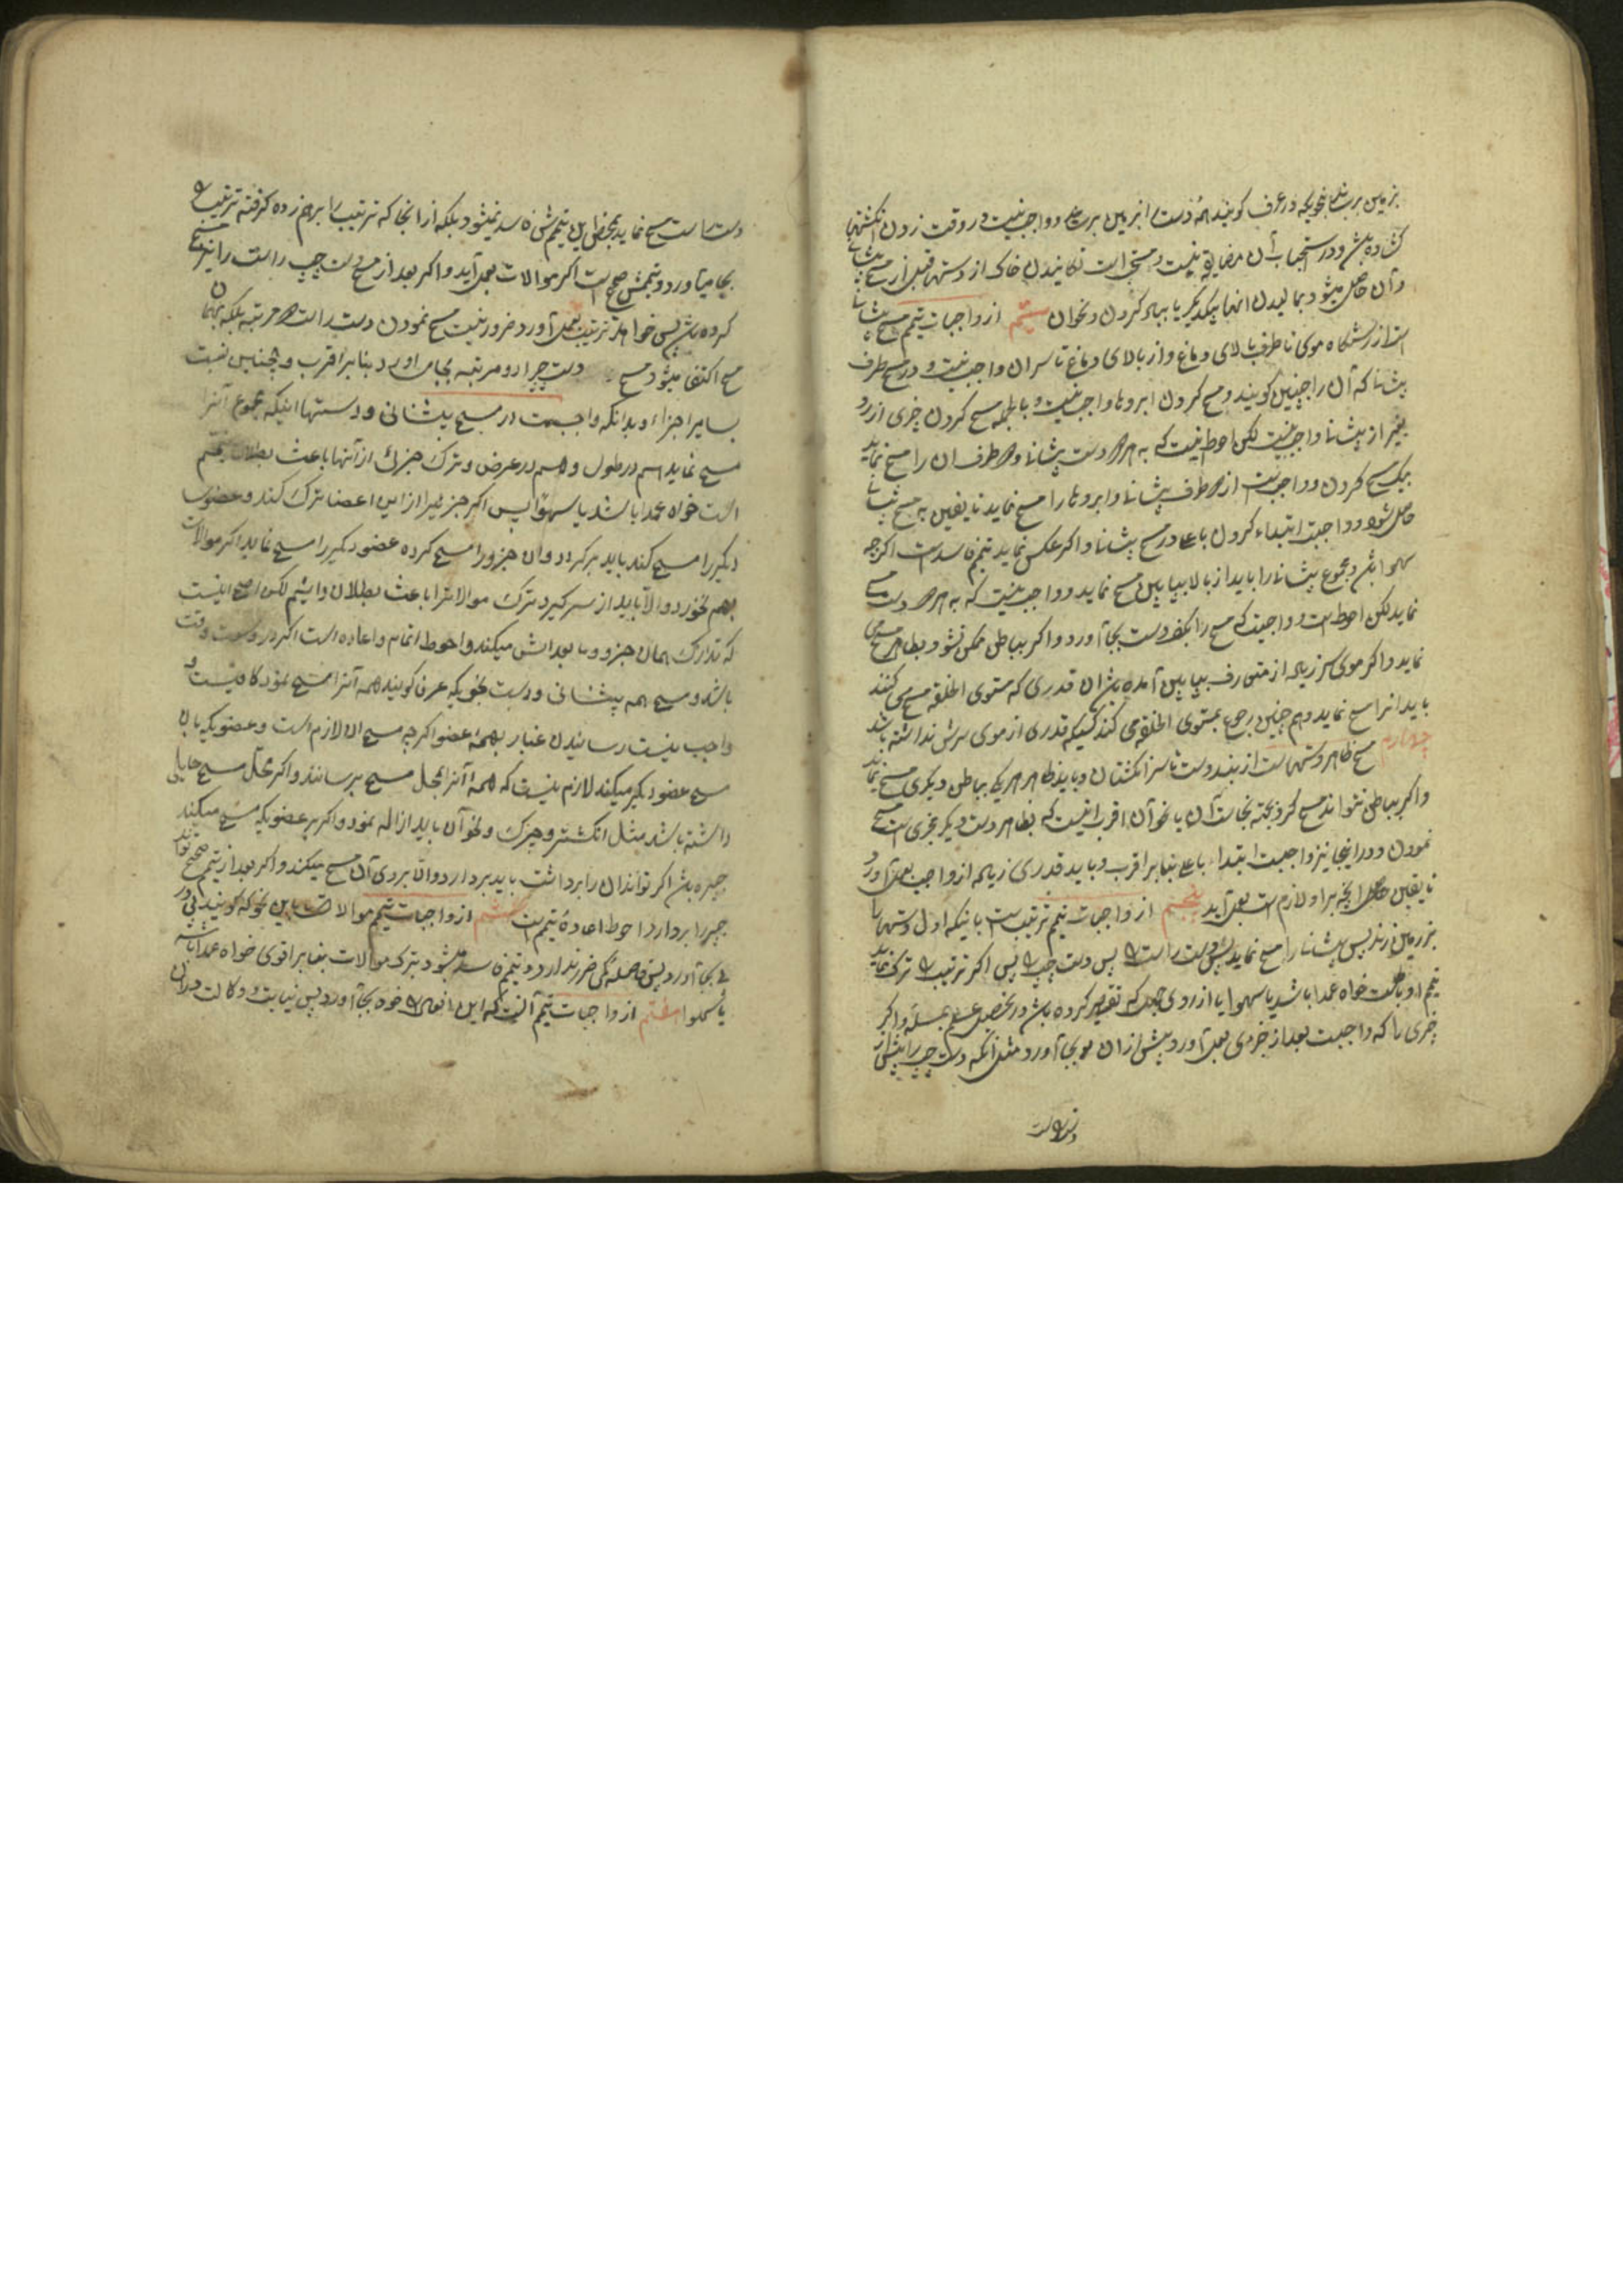 بزمین برسد بنحویکه در عرف کویند همه دست از بزمین برسد و واجب نیست در وقت زدن انکشتها
کشاده باشد و در استحباب آن مضایقه نیست و مستحب است تکانیدن خاک از دستها قبل از مسح پیشانی
و آن حاصل میشود بمالیدن انها بیکدیکر یا بباد کردن و نحوان سیم از واجبات تیمم مسح پیشانی
است از رستنکاه موی تا طرف بالای دماغ و از بالای دماغ تا سر ان واجب نیست و در مسح طرف
پیشانی که آن را جبینین کویند و مسح کردن ابروها واجب نیست و بالجمله مسح کردن چیزی از رو
بغیر از پیشانی واجب نیست لکن احوط انیست که به هر دو دست پیشانی و دو طرف ان را مسح نماید
بیک مسح کردن و واجب است از دو طرف پیشانی و ابروها را مسح نماید تا یقین به مسح پیشانی
حاصل شود و واجبت ابتداء کردن باعلی در مسح پیشانی و اکر عکس نماید تیمم فاسد است اکرچه
سهوا باشد و مجموع پیشانی را باید از بالا بپایین مسح نماید و واجب نیست که به هر دو دست مسح
نماید لکن احوط است و واجبت که مسح را بکف دست بجا آورد و اکر بباطن ممکن نشود بظاهر مسح می
نماید و اکر موی سر زیاد از متعارف بپایین آمده باشد ان قدری که مستوی الخلقه مسح می کنند
باید انرا مسح نماید و هم چنین رجوع بمستوی الخلقه می کند کسیکه قدری از موی سرش نداشته باشد
چهارم مسح ظاهر دستها است از بند دست تا سر انکشتان و باید ظاهر هر یک بباطن دیکری مسح نماید
و اکر بباطن نتواند مسح کرد بجته نجاست آن یا نحو آن اقرب انیست که بظاهر دست دیکر مجزی است مسح
نمودن و در اینجا نیز واجبست ابتداء باعلی بنابر اقرب و باید قدری زیاده از واجب بعمل آورد
تا یقین حاصل انچه بر او لازم است بعمل آید پنجم از واجبات تیمم ترتیب است باینکه اول دستها را
بزمین زند پس پیشانی را مسح نماید پس دست راست را پس دست چپ را پس اکر ترتیب را ترک نماید
تیمم او باطلست خواه عمدا باشد یا سهوا یا از روی جهل که تقصیر کرده باشد در تحصیل علم بمسئله و اکر
چیزی را که واجبست بعد از چیزی بعمل آورد پیش از ان بجا آورد مثل آنکه دست چپ را پیش از
دست راست
دست راست مسح نماید بمحض این تیمم‌ش فاسد نمیشود بلکه از انجا که ترتیب را برهم زده کرفته ترتیب را
بجا میآورد و تیممش صحیح است اکر موالات بعمل آید و اکر بعد از مسح دست چپ راست را نیز مسح
کرده باشد پس خواهد ترتیب بعمل آورد ضرور نیست مسح نمودن دست راست دو مرتبه بلکه بهمان
مسح اکتفا میشود مسح دست چپ را دو مرتبه بجا می اورد بنابر اقرب و همچنین نسبت
بسایر اجزاء و بدانکه واجبست در مسح پیشانی و دستها اینکه مجموع آنرا
مسح نماید هم در طول و هم در عرض و ترک جزئی از آنها باعث بطلان تیمم
است خواه عمدا باشد یا سهوا پس اکر جزئیرا از این اعضا ترک کند و عضوی
دیکر را مسح کند باید برکردد و ان جزو را مسح کرده عضو دیکر را مسح نماید اکر موالات
بهم نخورد و الّا باید از سر کیرد ترک موالاترا باعث بطلان دانیم لکن اصح انیست
که تدارک همان جزو و ما بعد انش میکند و احوط اتمام و اعاده است اکر در وسعت وقت
باشد و مسح همه پیشانی و دست بنحویکه عرفا کویند همه آنرا مسح نمود کافیست و
واجب نیست رسانیدن غبار بهمهٔ اعضو اکرچه مسح ان لازم است و عضویکه بان
مسح عضو دیکر میکند لازم نیست که همهٔ آنرا بمحل مسح برساند و اکر محل مسح حایلی
داشته باشد مثل انکشتر و چرک و نحو آن باید ازاله نمود و اکر بر عضویکه مسح میکند
جبیره باشد اکر تواند ان را برداشت باید بردارد و الّا بر روی آن مسح میکند و اکر بعد از تیمم صحیح تواند
جبیره را بردارد احوط اعادهٔ تیمم است ششم از واجبات تیمم موالات است باین نحو که کویند پی در
پی بجا آورد پس فاصله کمی ضرر ندارد و تیمم فاسد میشود بترک موالات بنابر اقوی خواه عمدا باشد
یا سهوا هفتم از واجبات تیمم آنست که این افعال را خود بجا آورد پس نیابت و وکالت در ان